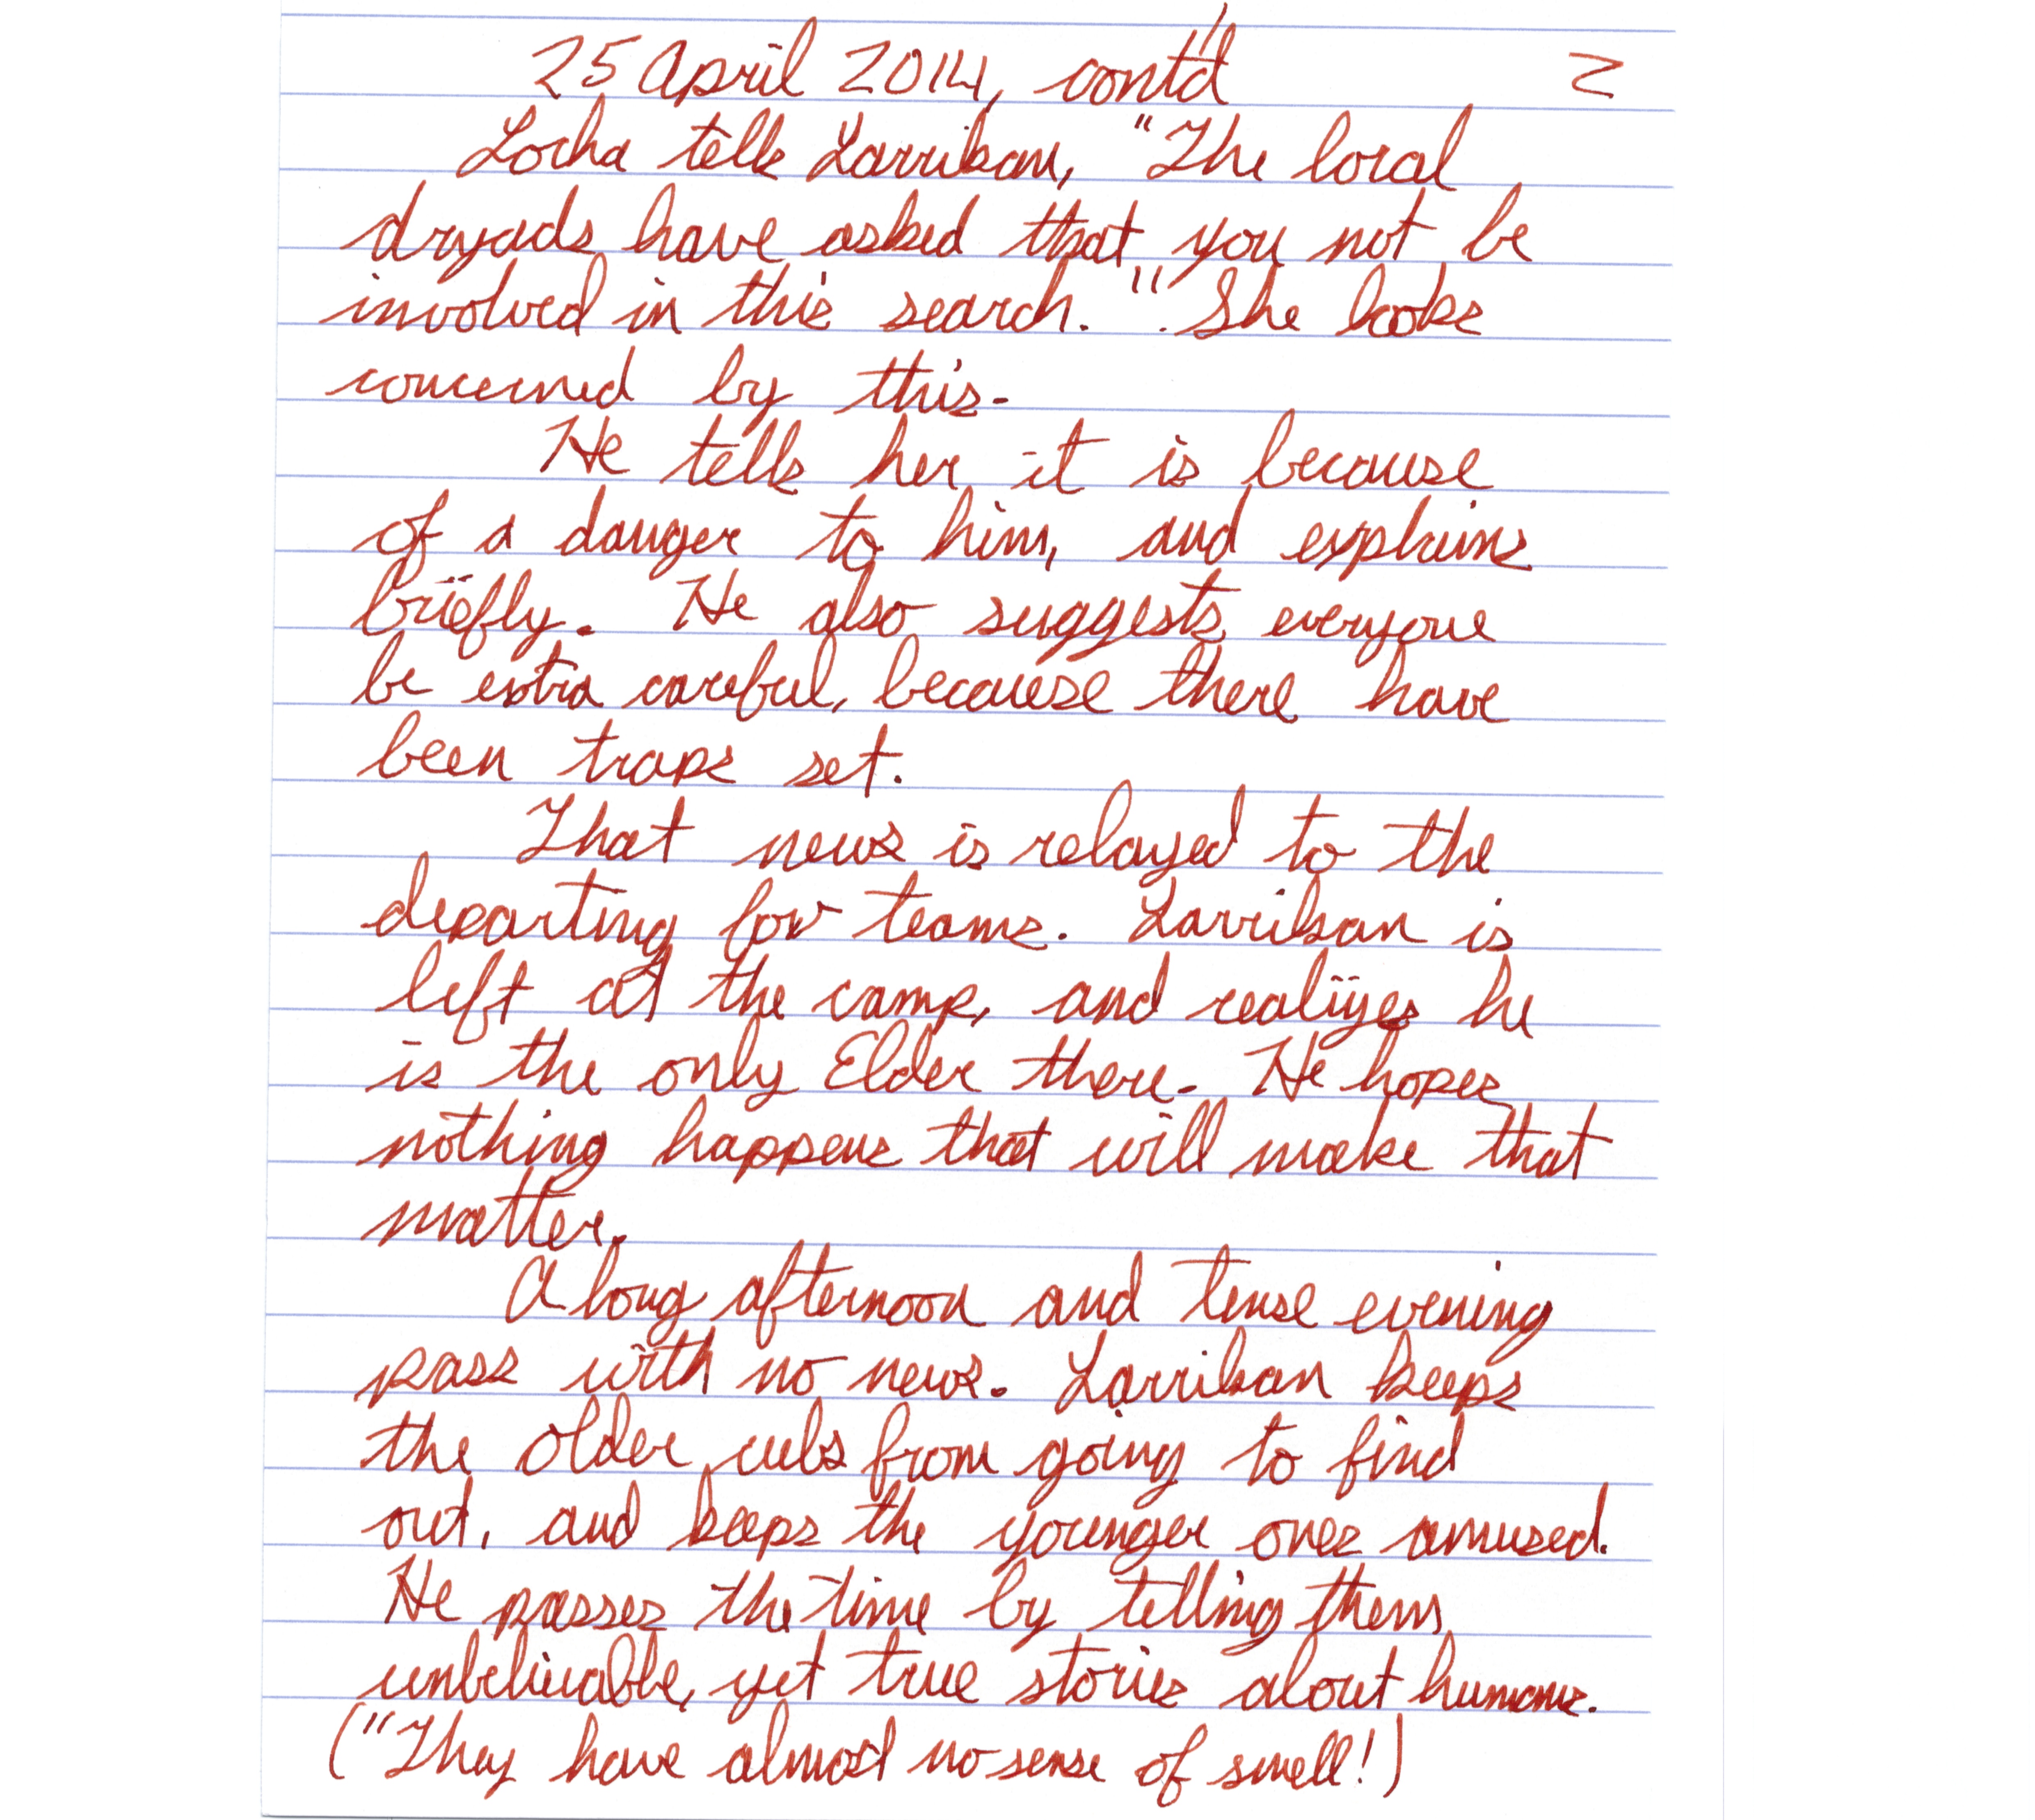 25 April 2014, cont'd 2
Locha tells Larrikan, "The local
dryads have asked that you not be
involved in this search." She looks
concerned by this.
He tells her it is because
of a danger to him, and explains
briefly. He also suggests everyone
be extra careful, because there have
been traps set.
That news is relayed to the
departing for teams. Larrikan is
left at the camp, and realizes he
is the only Elder there. He hopes
nothing happens that will make that
matter.
A long afternoon and tense evening
pass with no news. Larrikan keeps
the older cubs from going to find
out, and keeps the younger ones amused.
He passes the time by telling them
unbelievable, yet true stories about humans.
("They have almost no sense of smell!)